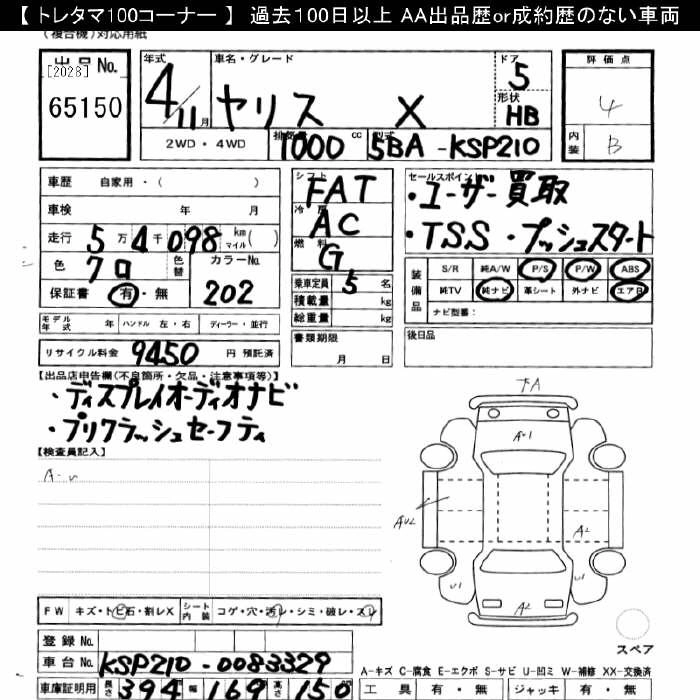 【 トレタマ100コーナー 】 過去100日以上 AA出品歴or成約歴のない車両
(複合機)対応用紙
出品No.
[2028]
65150
年式
4/11月
車名・グレード
ヤリス X
ドア
5
形状
HB
評価点
4
内装
B
2WD・4WD
排気量
1000cc
型式
5BA-KSP210
車歴 自家用・( )
車検 年 月
走行 5万4千098 km マイル( )
色 クロ
色替
カラーNo.
202
保証書 有・無
シフト
FAT
冷房
AC
燃料
G
乗車定員 5名
積載量 kg
総重量 kg
セールスポイント
・ユーザー買取
・TSS ・プッシュスタート
装備品
S/R 純A/W P/S P/W ABS
純TV 純ナビ 革シート 外ナビ エアB
ナビ型番:
モデル年式 年 ハンドル 左・右 ディーラー・並行
書類期限
月 日
後日品
リサイクル料金 9450 円 預託済
【出品店申告欄(不良箇所・欠品・注意事項等)】
・ディスプレイオーディオナビ
・プリクラッシュセーフティ
【検査員記入】
A-U
下A
AU1
AU2
A2
U1
U1
A2
スペア
FW キズ・トビ石・割レX シート内装 コゲ・穴・汚レ・シミ・破レ・スレ
登録No.
車台No. KSP210-0083329
車庫証明用 長さ 394 幅 169 高さ 150
A-キズ C-腐食 E-エクボ S-サビ U-凹ミ W-補修 XX-交換済
工具 有・無 ジャッキ 有・無